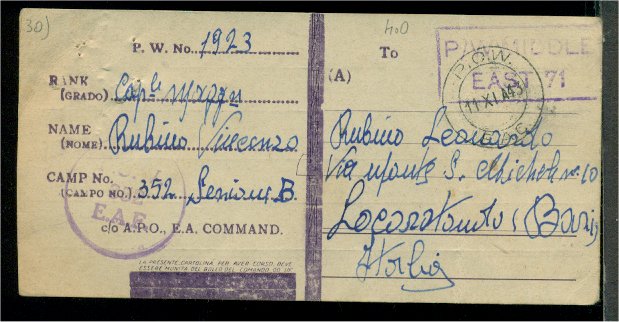 30)
P. W. No. 1923
RANK
(GRADO) Cap.le magg.
NAME
(NOME) Rubino Vincenzo
CAMP No.
(CAMPO NO.) 352 Sezione B.
c/o A.P.O., E.A. COMMAND.
E.A.F.
LA PRESENTE CARTOLINA PER AVER CORSO, DEVE
ESSERE MUNITA DEL BOLLO DEL COMANDO
To
(A)
MIDDLE
EAST 71
P.O.W.
11 XI
Rubino Leonardo
Via Monte S. Michele n. 10
Locorotondo (Bari)
Italia